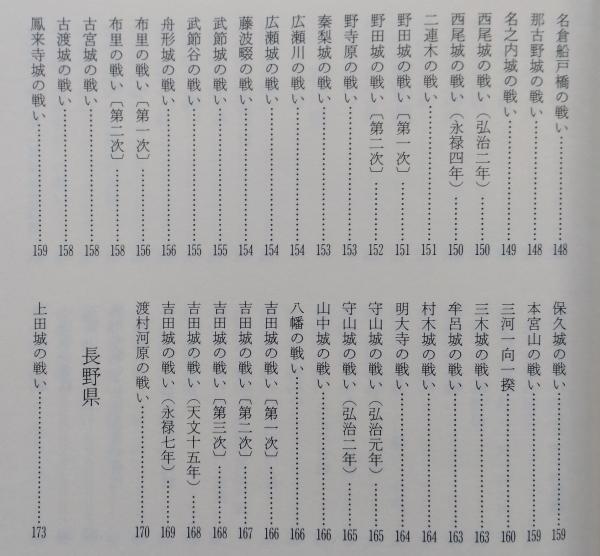 名倉船戸橋の戦い……………148
那古野城の戦い……………148
名之内城の戦い……………149
西尾城の戦い(弘治二年)……150
西尾城の戦い(永禄四年)……150
二連木の戦い……………151
野田城の戦い〔第一次〕……151
野田城の戦い〔第二次〕……152
野寺原の戦い……………153
秦梨城の戦い……………153
広瀬川の戦い……………154
広瀬城の戦い……………154
藤波畷の戦い……………154
武節城の戦い……………155
武節谷の戦い……………155
舟形城の戦い……………156
布里の戦い〔第一次〕……156
布里の戦い〔第二次〕……158
古宮城の戦い……………158
古渡城の戦い……………158
鳳来寺城の戦い……………159
保久城の戦い……………159
本宮山の戦い……………159
三河一向一揆……………160
三木城の戦い……………163
牟呂城の戦い……………163
村木城の戦い……………164
明大寺の戦い……………164
守山城の戦い(弘治元年)……165
守山城の戦い(弘治二年)……165
山中城の戦い……………166
八幡の戦い……………166
吉田城の戦い〔第一次〕……166
吉田城の戦い〔第二次〕……167
吉田城の戦い〔第三次〕……168
吉田城の戦い(天文十五年)……168
吉田城の戦い(永禄七年)……169
渡村河原の戦い……………170
長野県
上田城の戦い……………173